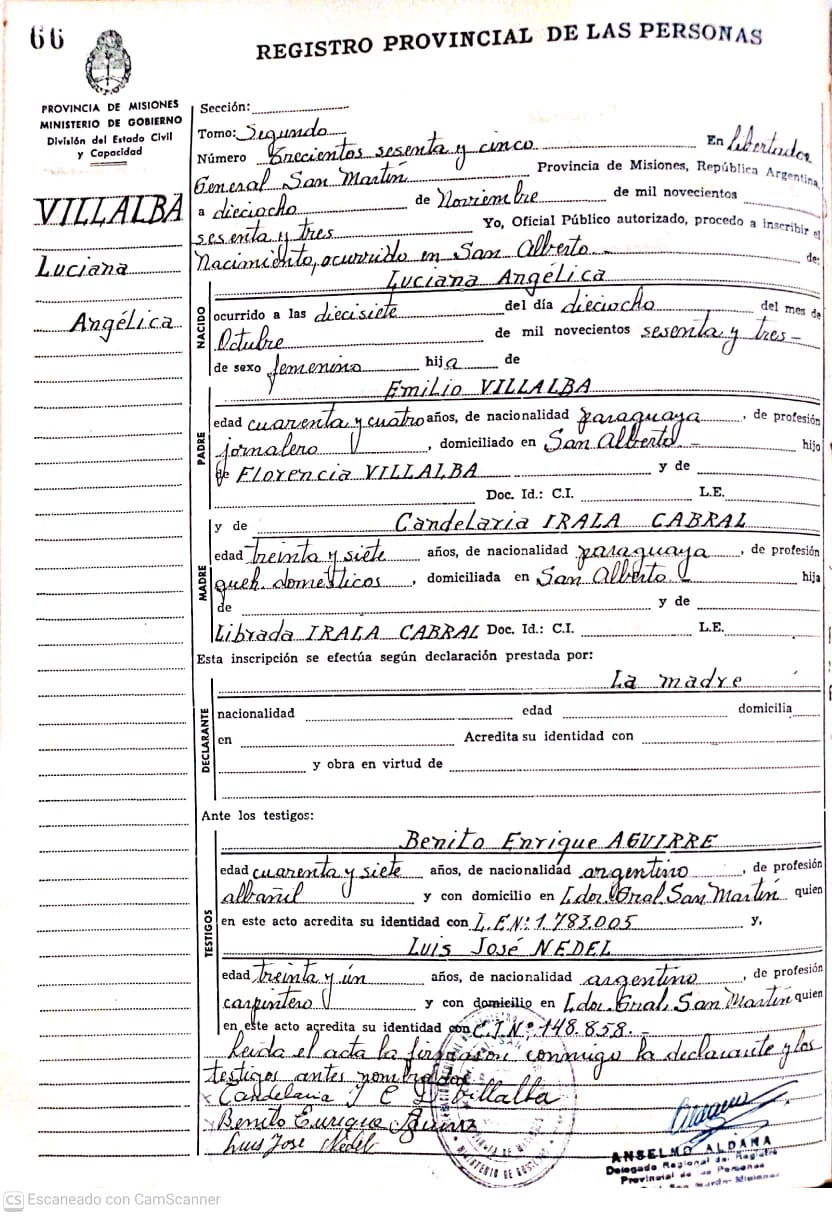 66
REGISTRO PROVINCIAL DE LAS PERSONAS
PROVINCIA DE MISIONES
MINISTERIO DE GOBIERNO
División del Estado Civil
y Capacidad
VILLALBA
Luciana
Angélica
Sección:
Tomo: Segundo
Número Trecientos sesenta y cinco En Libertador
General San Martín Provincia de Misiones, República Argentina,
a dieciocho de Noviembre de mil novecientos
sesenta y tres Yo, Oficial Público autorizado, procedo a inscribir el
Nacimiento, ocurrido en San Alberto.- de:
NACIDO
Luciana Angélica
ocurrido a las diecisiete del día dieciocho del mes de
Octubre de mil novecientos sesenta y tres-
de sexo femenino hija de
PADRE
Emilio VILLALBA
edad cuarenta y cuatro años, de nacionalidad paraguaya, de profesión
jornalero, domiciliado en San Alberto - hijo
de Florencia VILLALBA y de
Doc. Id.: C.I. L.E.
MADRE
y de Candelaria IRALA CABRAL
edad treinta y siete años, de nacionalidad paraguaya, de profesión
queh. domésticos, domiciliada en San Alberto - hija
de y de
Librada IRALA CABRAL Doc. Id.: C.I. L.E.
Esta inscripción se efectúa según declaración prestada por:
DECLARANTE
La madre
nacionalidad edad domicilia
en Acredita su identidad con
y obra en virtud de
Ante los testigos:
TESTIGOS
Benito Enrique AGUIRRE
edad cuarenta y siete años, de nacionalidad argentino, de profesión
albañil y con domicilio en Ldor. Gral. San Martín quien
en este acto acredita su identidad con L.E Nº: 1.783.005 y,
Luis José NEDEL
edad treinta y un años, de nacionalidad argentino, de profesión
carpintero y con domicilio en Ldor. Gral. San Martín quien
en este acto acredita su identidad con C.I. Nº: 148.858.-
Leida el acta la firmaron conmigo la declarante y los
testigos antes nombrados
x Candelaria I C D Villalba
x Benito Enrique Aguirre
Luis Jose Nedel
MINISTERIO DE GOBIERNO
ANSELMO ALDANA
Delegado Regional del Registro
Provincial de las Personas
Gral. San Martín - Misiones
CS Escaneado con CamScanner